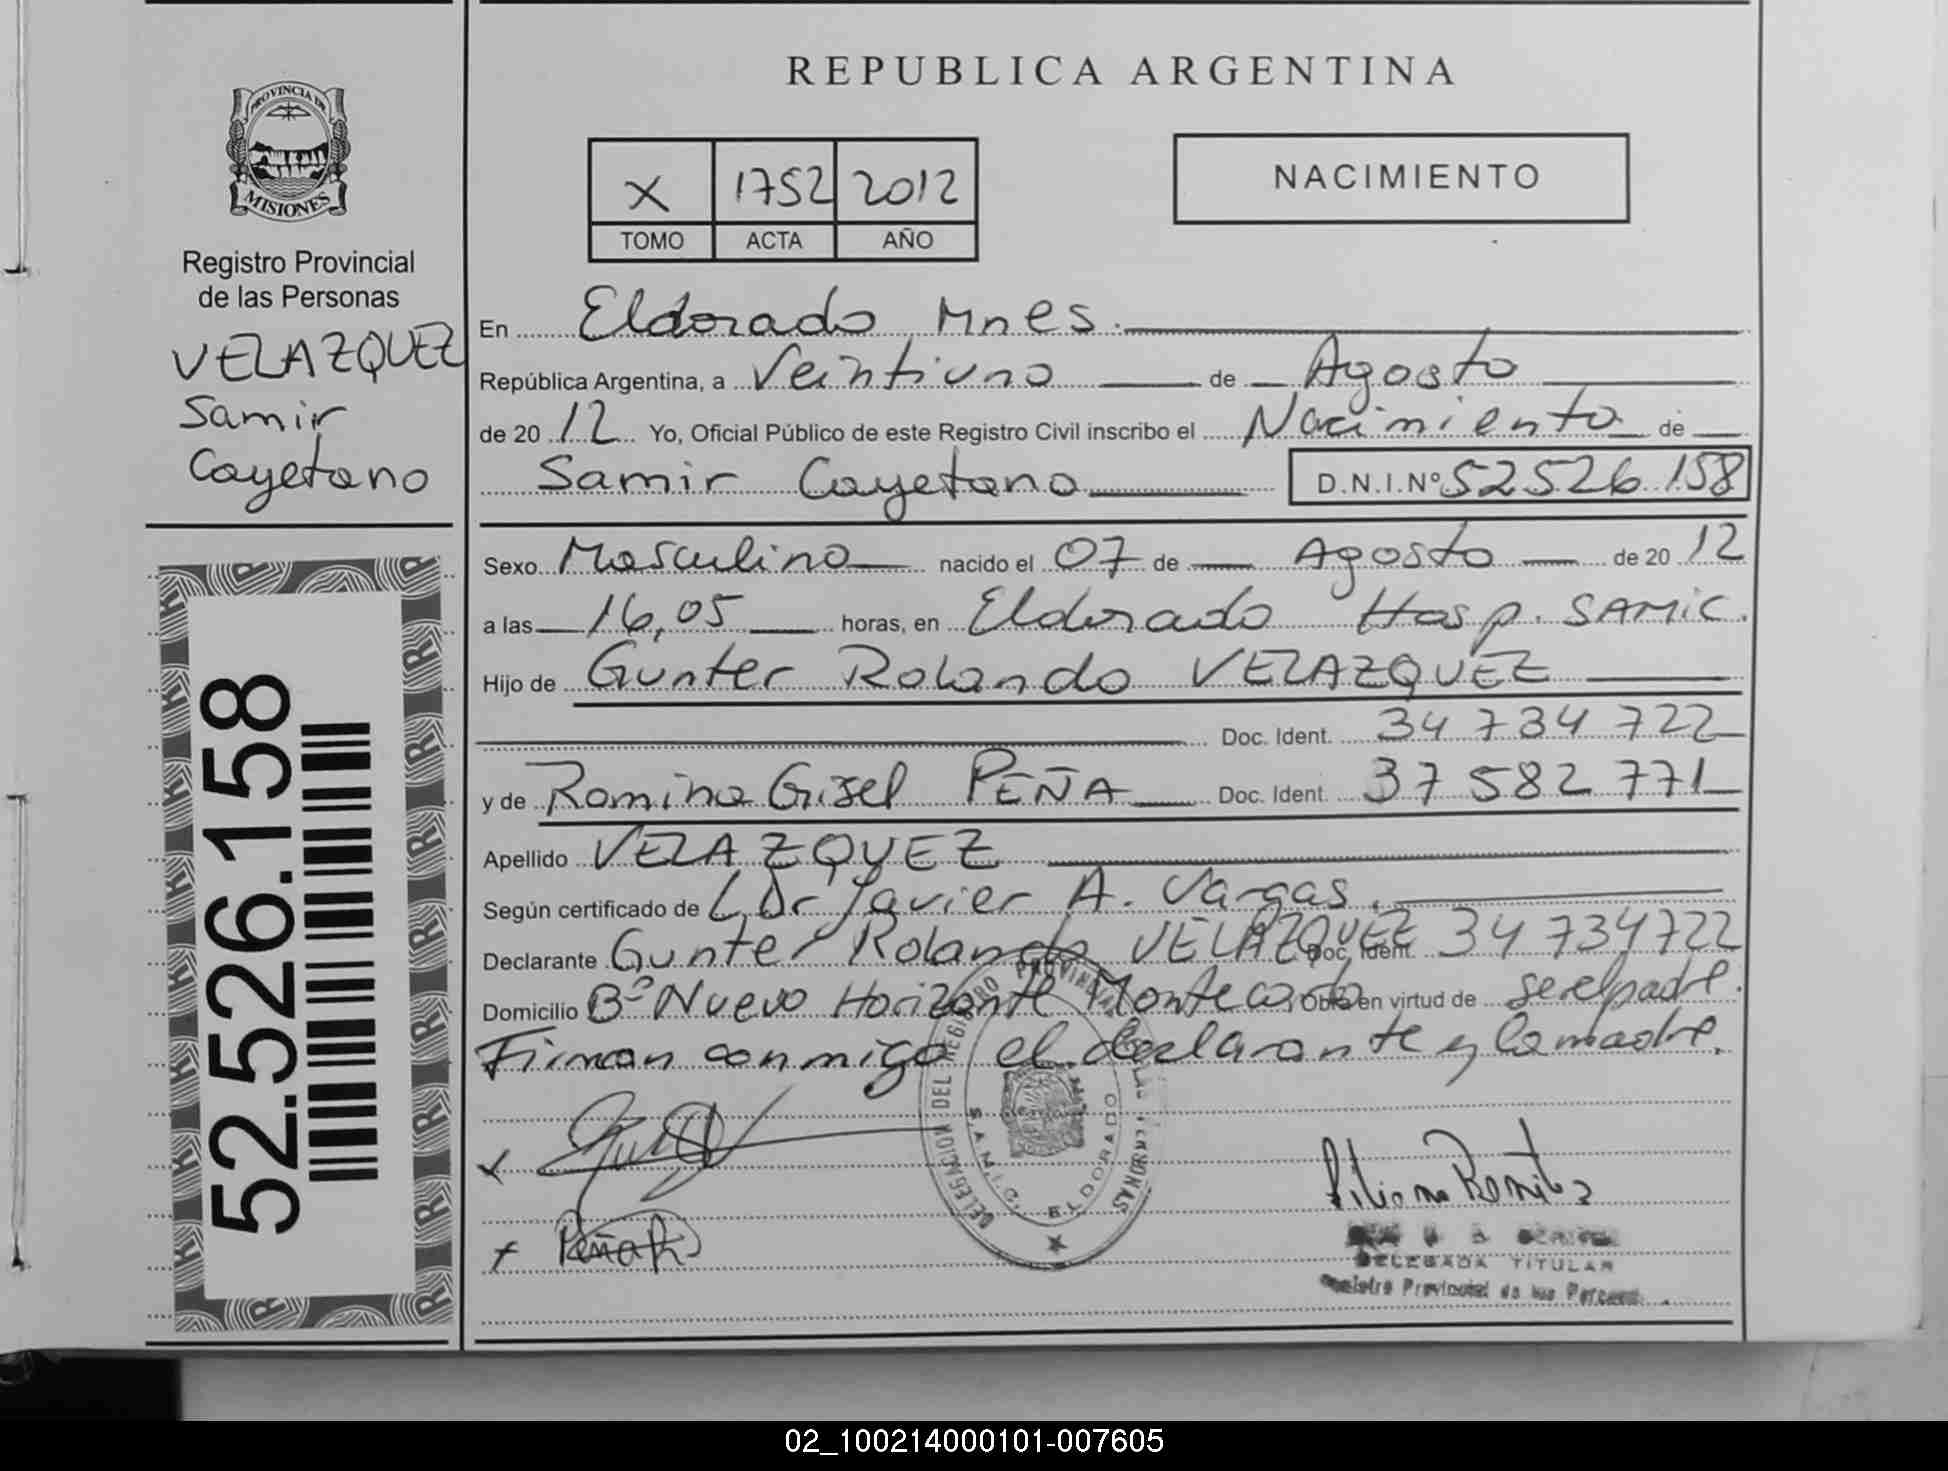 REPUBLICA ARGENTINA
PROVINCIA DE
MISIONES
Registro Provincial
de las Personas
VELAZQUEZ
Samir
Cayetano
52.526.158
X 1752 2012
TOMO ACTA AÑO
NACIMIENTO
En Eldorado Mnes.
República Argentina, a Veintiuno de Agosto
de 20 12 Yo, Oficial Público de este Registro Civil inscribo el Nacimiento de
Samir Cayetano D.N.I.Nº 52526158
Sexo Masculino nacido el 07 de Agosto de 20 12
a las 16,05 horas, en Eldorado Hosp. SAMIC.
Hijo de Gunter Rolando VELAZQUEZ
Doc. Ident. 34 734 722
y de Romina Gisel PEÑA Doc. Ident. 37 582 771
Apellido VELAZQUEZ
Según certificado de Dr Javier A. Vargas.
Declarante Gunter Rolando VELAZQUEZ Doc. Ident. 34 734722
Domicilio Bº Nuevo Horizonte Montecarlo, Obra en virtud de ser el padre.
Firman conmigo el declarante y la madre.
DELEGACION DEL REGISTRO PROVINCIAL DE LAS PERSONAS
S.A.M.I.C. ELDORADO
Peña R
Liliana Benitez
DELEGADA TITULAR
Registro Provincial de las Personas
02_100214000101-007605